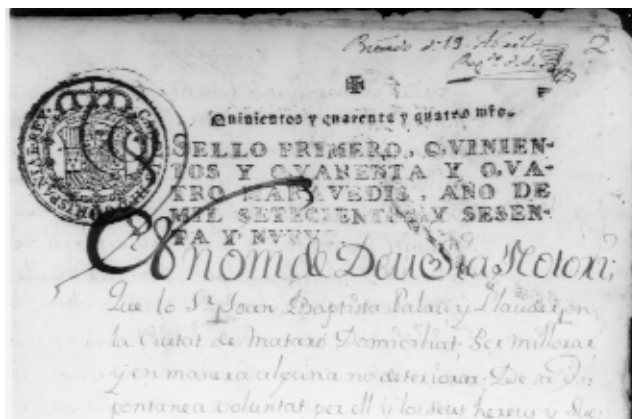 2
Quinientos y quarenta y quatro mrs.
HISPANIAR. REX
SELLO PRIMERO, QVINIEN-
TOS Y QVARENTA Y QVA-
TRO MARAVEDIS, AÑO DE
MIL SETECIENTOS Y SESEN-
TA Y NVEVE.
En nom de Deu Sia Notori;
Que lo Sr. Joan Baptista Palau y Llauder, en
la Ciutat de Mataró Domiciliat, Per millorar
y en manera alguna no deteriorar. De sa
pontanea voluntat per ell y los seus hereus y